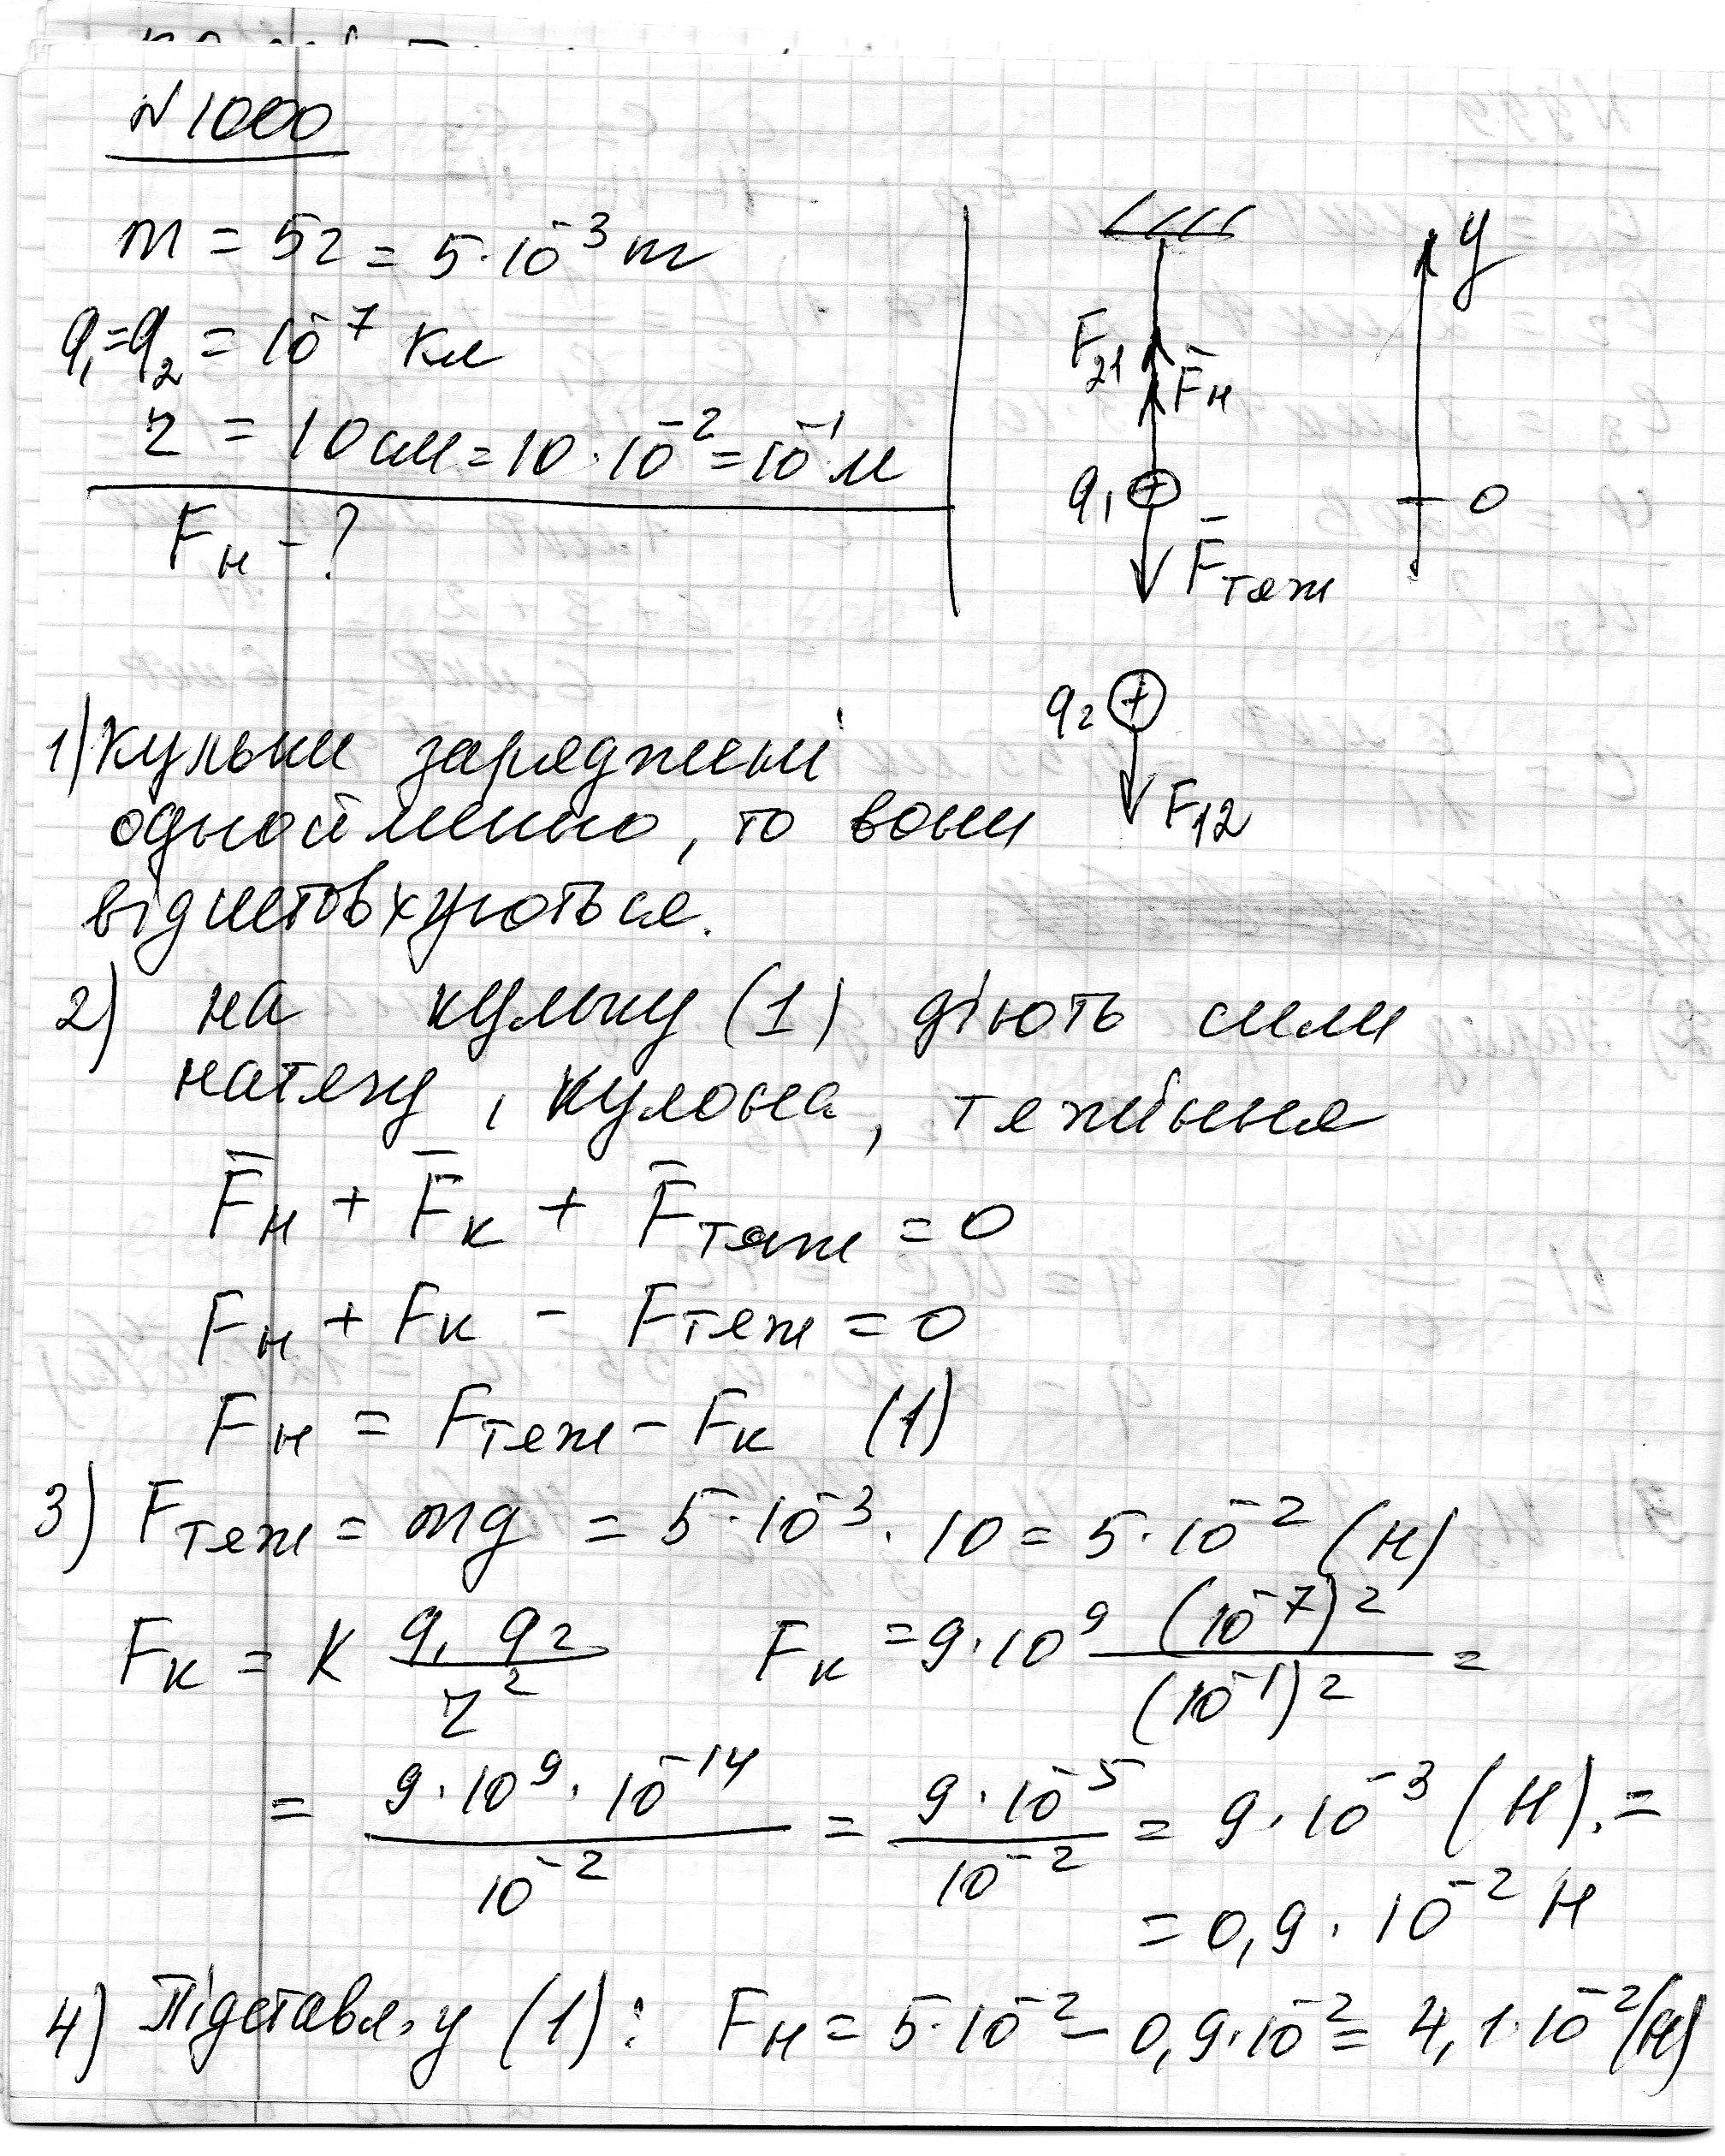 N 1000
m = 5г = 5·10⁻³ кг
q₁=q₂ = 10⁻⁷ Кл
r = 10см = 10·10⁻² = 10⁻¹ м
Fн - ?
y
F₂₁
F̄н
q₁ +
0
F̄тяж
q₂ +
F₁₂
1) Кульки заряджені
однойменно, то вони
відштовхуються.
2) на кульку (1) діють сили
натягу, Кулона, тяжіння
F̄н + F̄к + F̄тяж = 0
Fн + Fк - Fтяж = 0
Fн = Fтяж - Fк (1)
3) Fтяж = mg = 5·10⁻³·10 = 5·10⁻² (Н)
Fк = k q₁ q₂ / r² Fк = 9·10⁹ (10⁻⁷)² / (10⁻¹)² =
= 9·10⁹·10⁻¹⁴ / 10⁻² = 9·10⁻⁵ / 10⁻² = 9·10⁻³ (Н). =
= 0,9·10⁻² Н
4) Підставл. у (1): Fн = 5·10⁻² - 0,9·10⁻² = 4,1·10⁻² (Н)